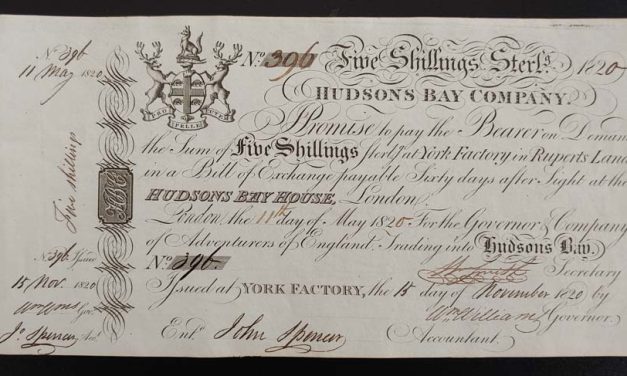 No. 396
11 May 1820
Five shillings
HBC
No. 396 Issued
15 Nov. 1820
Gov.
Jo. Spencer Acc.
PRO CUTEM
PELLE
No. 396 Five Shillings Sterls. 1820
HUDSONS BAY COMPANY.
Promise to pay the Bearer on Demand
the Sum of Five Shillings Sterlg. at York Factory in Ruperts Land
in a Bill of Exchange payable Sixty days after Sight at the
HUDSONS BAY HOUSE, London
London, the 11th day of May 1820 For the Governor & Company
of Adventurers of England, Trading into Hudsons Bay.
No. 396.
Wm Smith Secretary
Issued at YORK FACTORY, the 15 day of November 1820 by
Wm Williams Governor.
Entd. John Spencer Accountant.